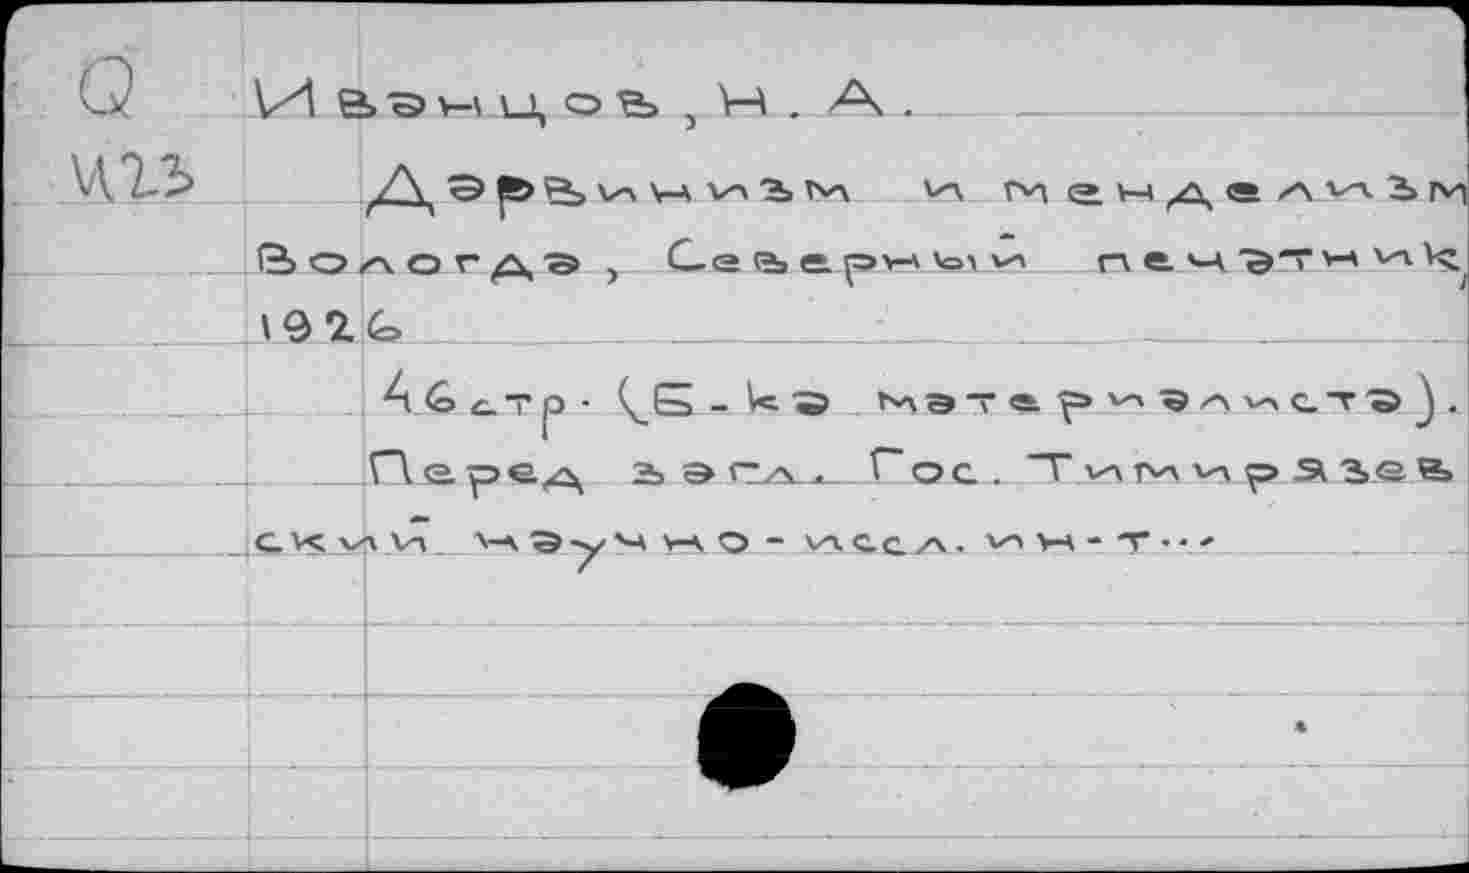 Q
И23
Иванцов, Н. А.
Дарвинизм и менделизм
Вологда, Северный печатник,
1926
46 стр. (Б-ка материалиста).
Перед загл. Гос. Тимирязев
ский научно-иссл. ин-т...